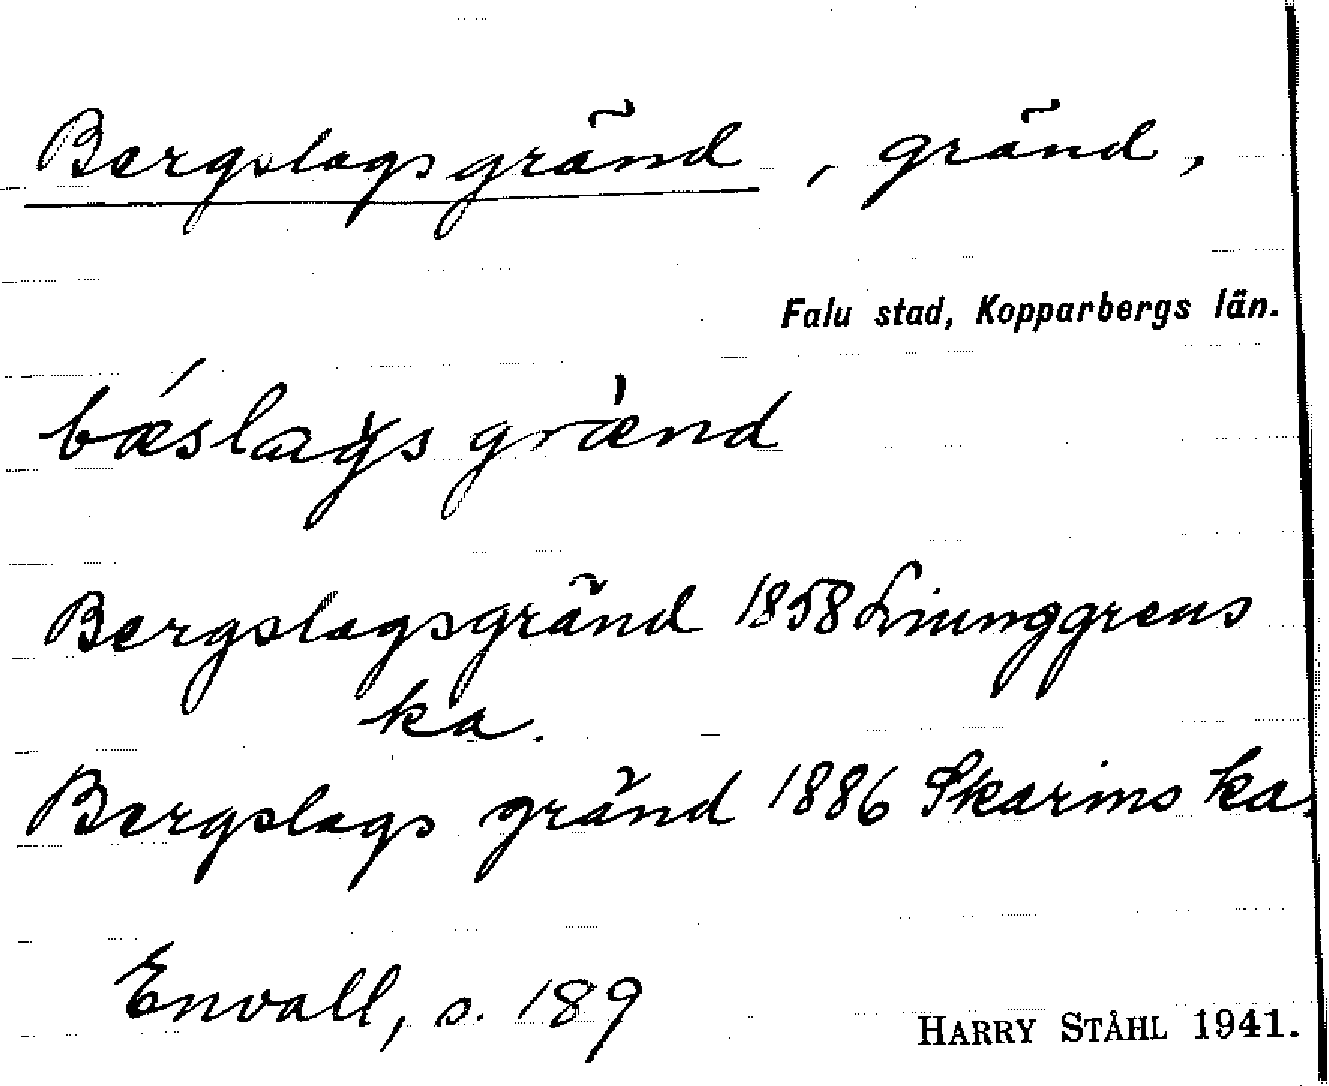 Bergslagsgränd, gränd,
Falu stad, Kopparbergs län.
bǽslags grænd
Bergslagsgränd 1858 Liunggrens
ka.
Bergslags gränd 1886 Skarins ka.
Envall, s. 189
HARRY STÅHL 1941.